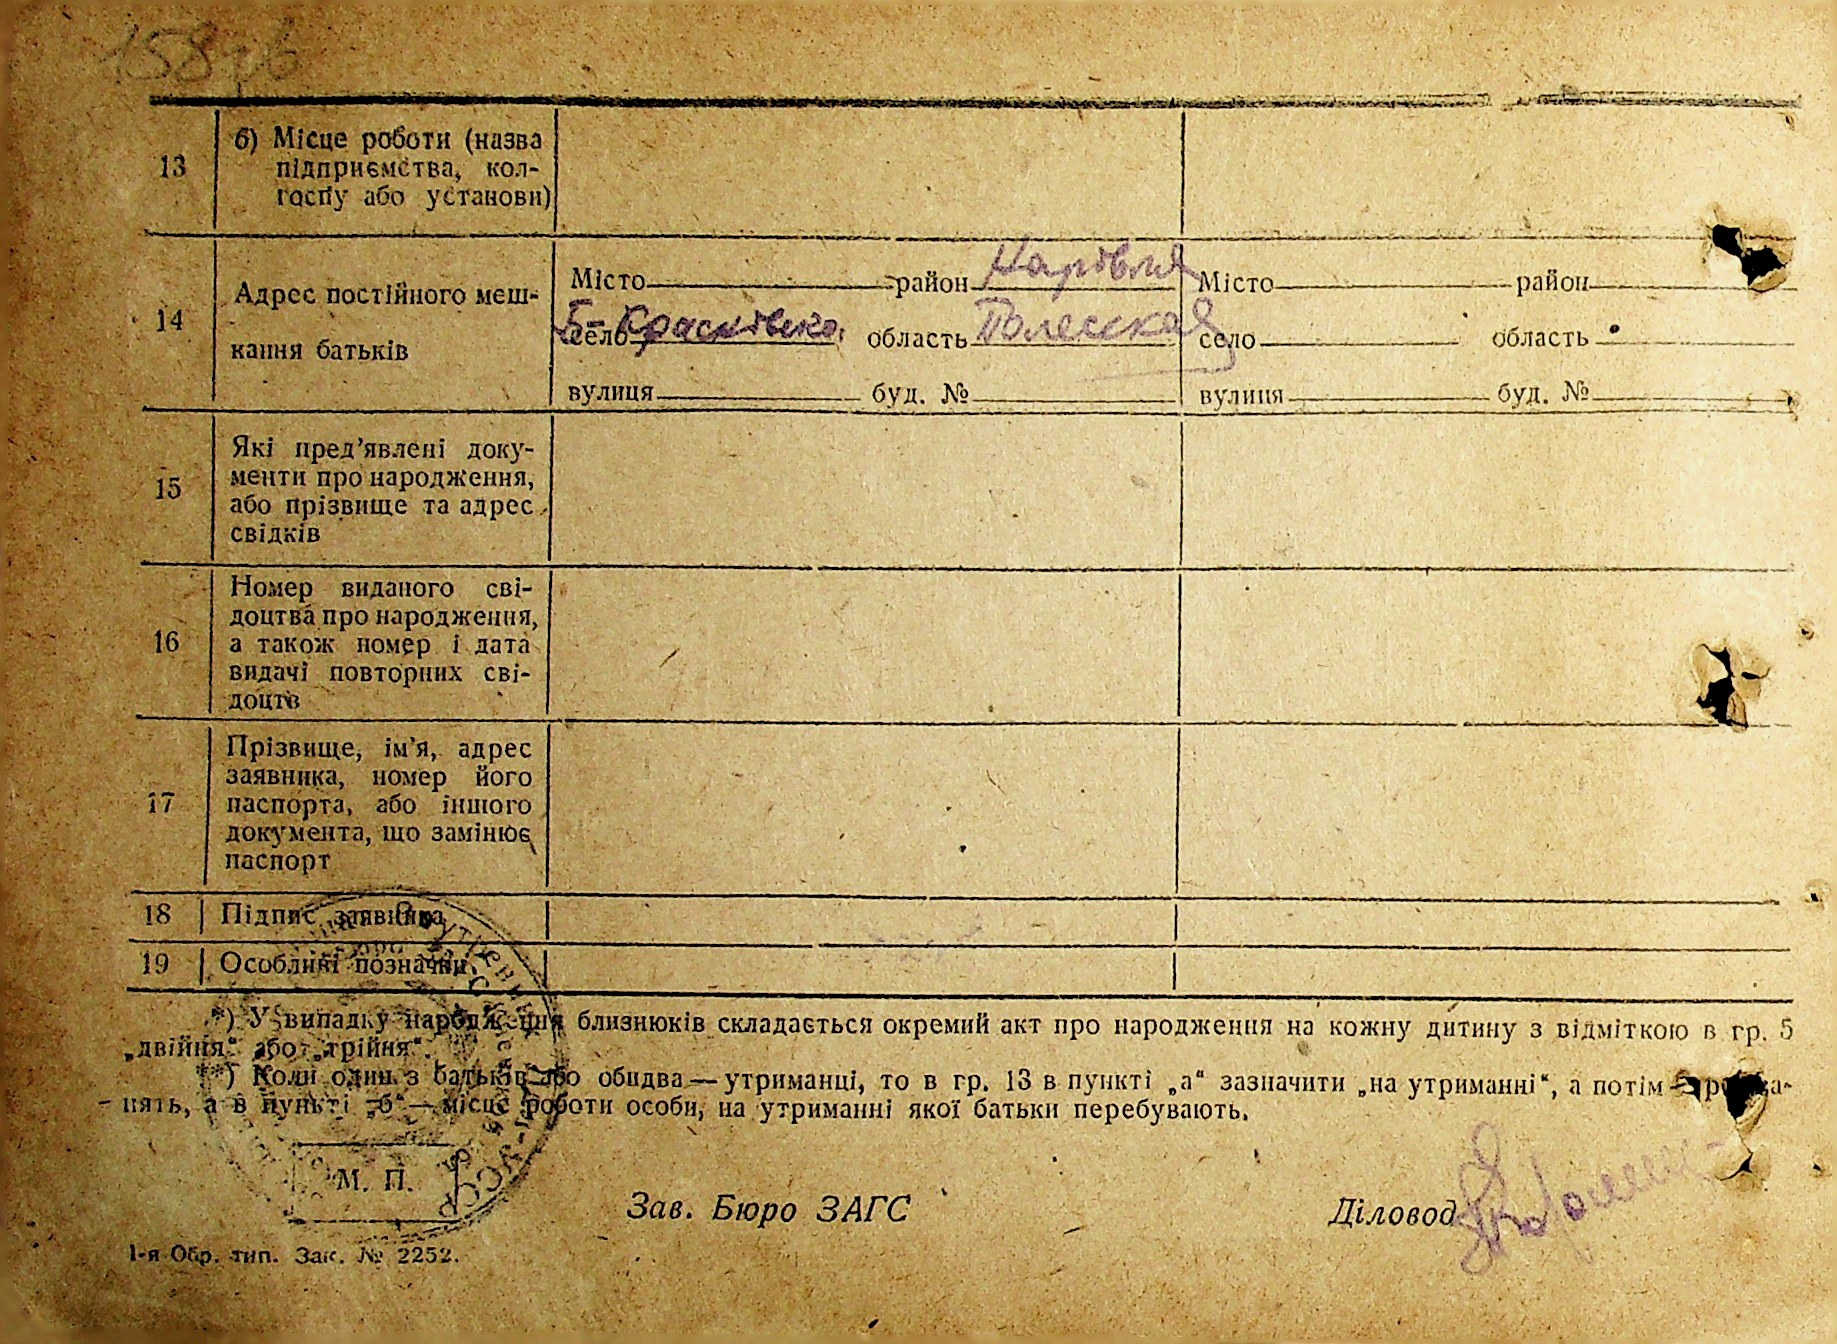 158 рб
13 б) Місце роботи (назва
підприємства, кол-
госпу або установи)
14 Адрес постійного меш-
кання батьків
Місто район Наровля Місто район
село Б-Красновка область Полесская село область
вулиця буд. № вулиця буд. №
15 Які пред’явлені доку-
менти про народження,
або прізвище та адрес
свідків
16 Номер виданого сві-
доцтва про народження,
а також номер і дата
видачі повторних сві-
доцтв
17 Прізвище, ім’я, адрес
заявника, номер його
паспорта, або іншого
документа, що замінює
паспорт
18 Підпис заявника
19 Особливі позначки
*) У випадку народження близнюків складається окремий акт про народження на кожну дитину з відміткою в гр. 5
„двійня“ або „трійня“.
**) Коли один з батьків або обидва — утриманці, то в гр. 13 в пункті „а“ зазначити „на утриманні“, а потім
нять, а в пункті „б“ — місце роботи особи, на утриманні якої батьки перебувають.
М. П.
Зав. Бюро ЗАГС Діловод
1-я Обр. тип. Зак. № 2252.